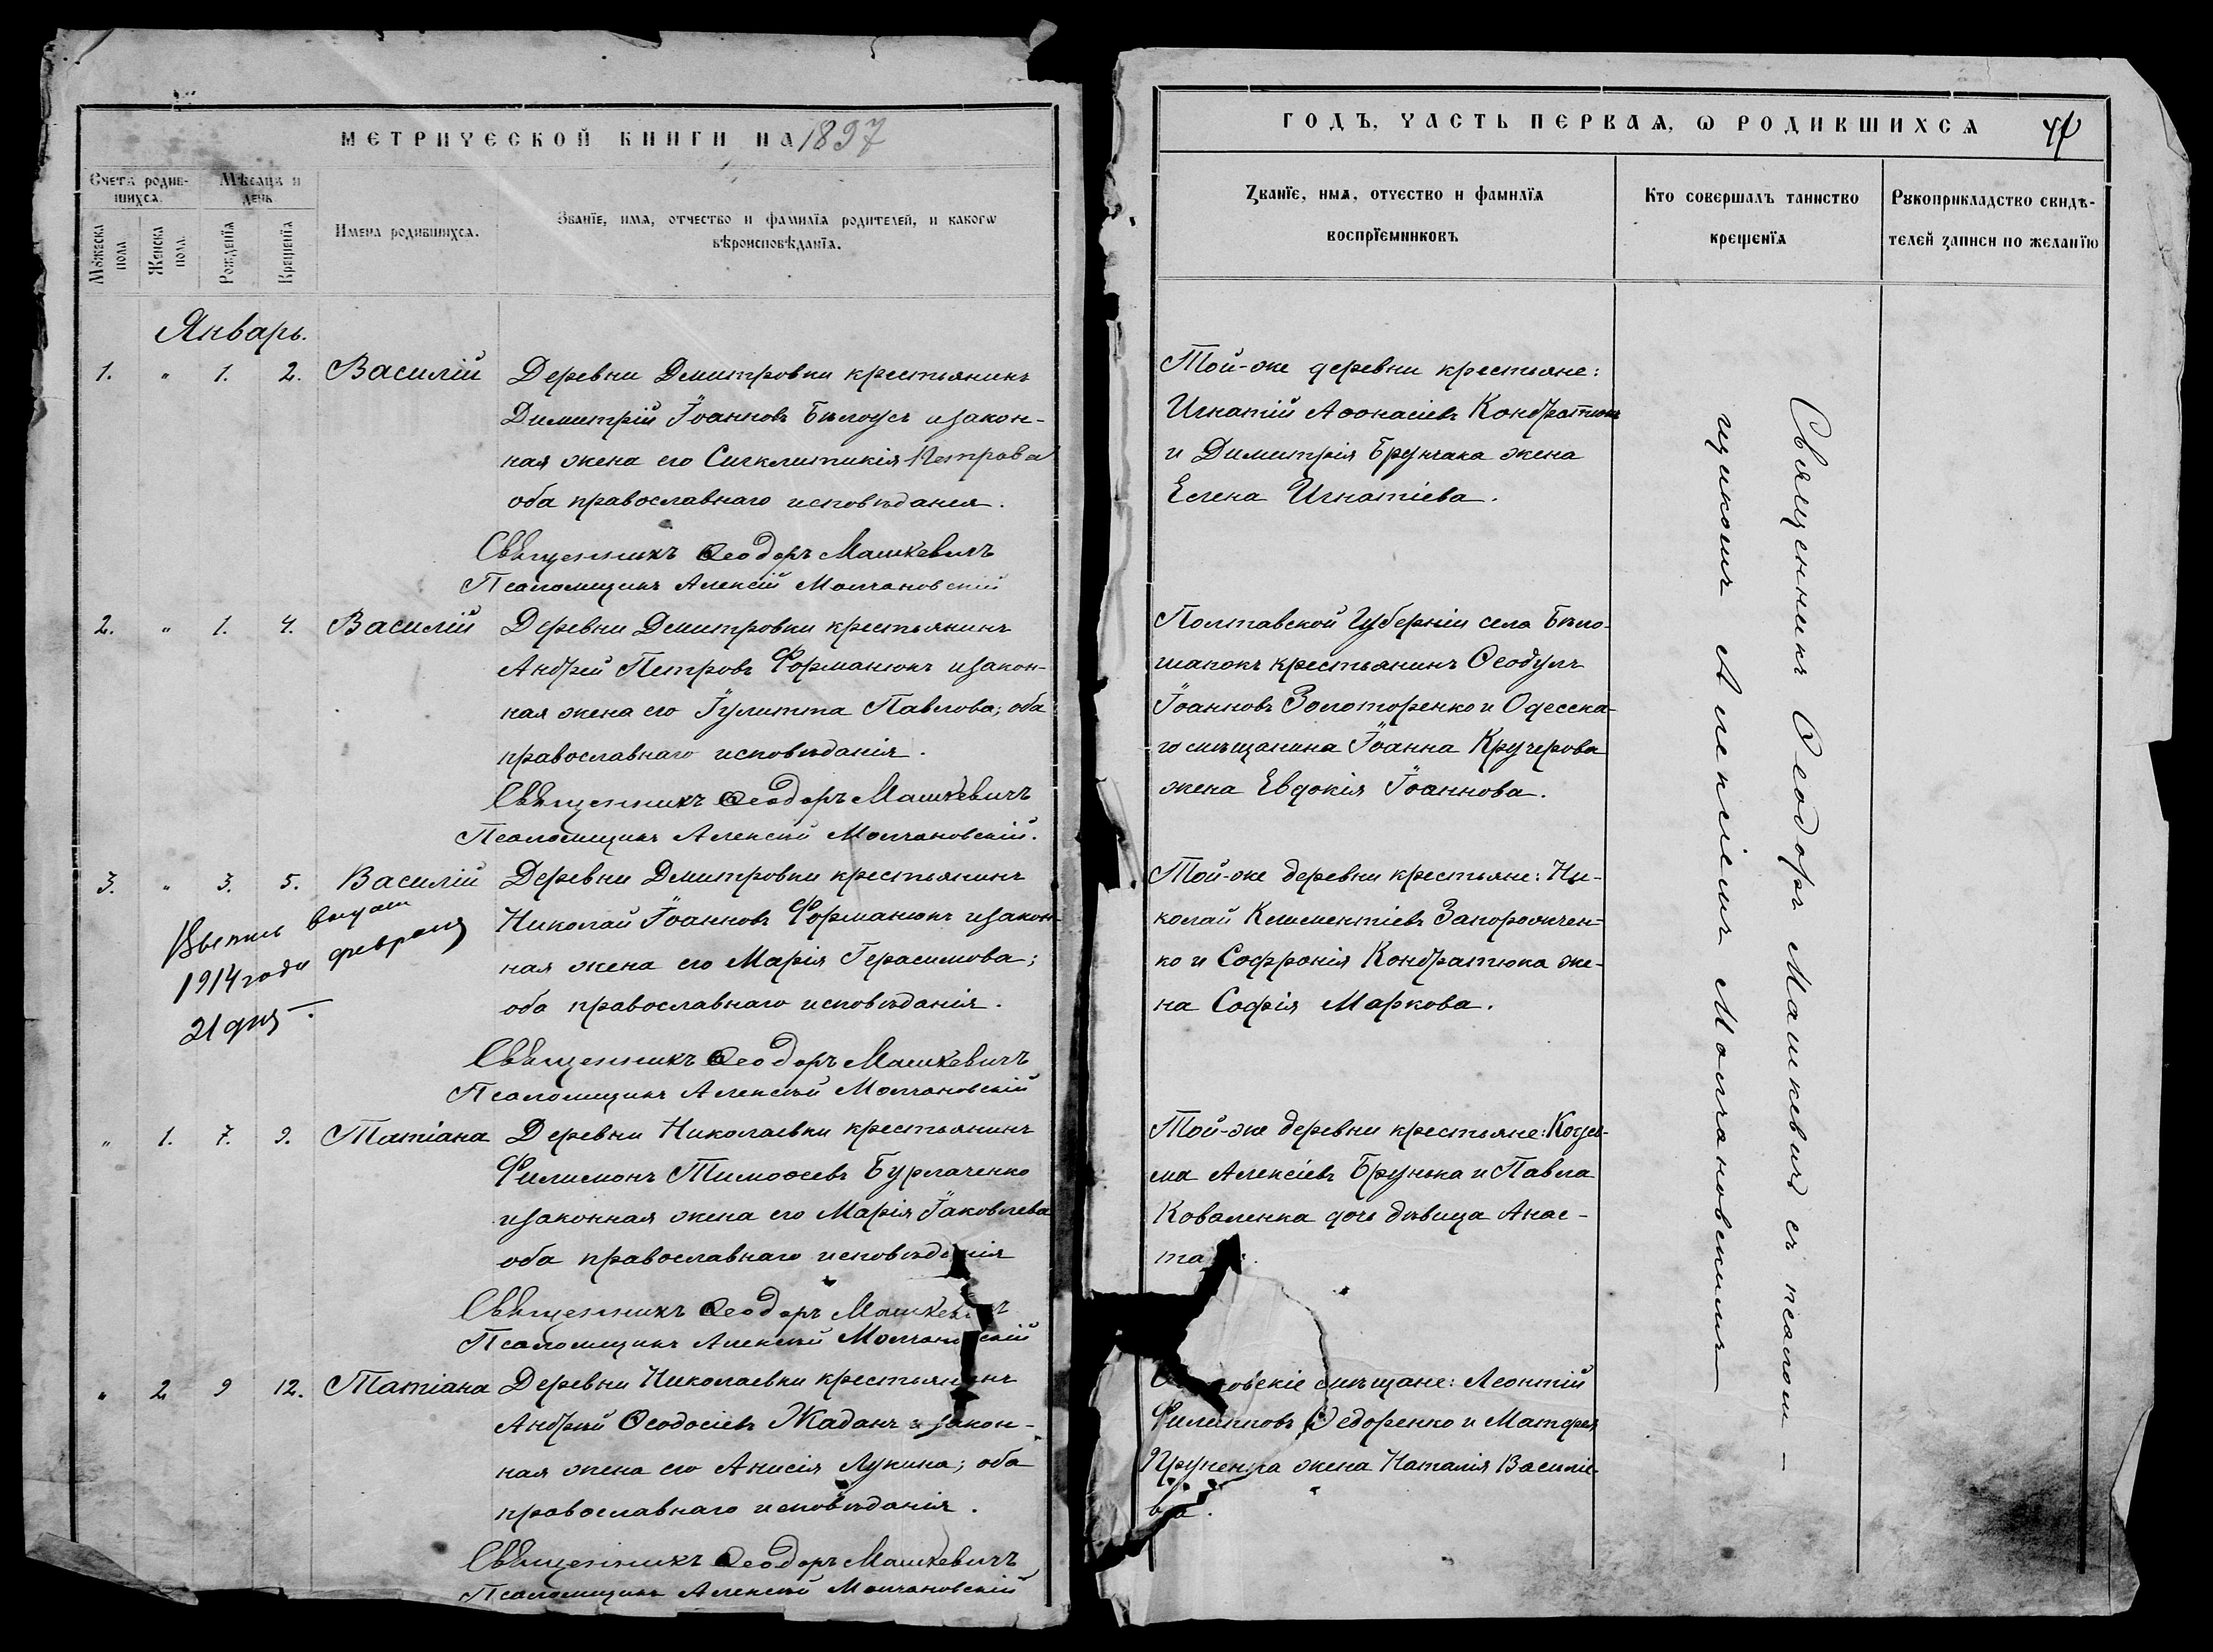 МЕТРИЧЕСКОЙ КНИГИ НА 1897
Счетъ родив-
шихся.
Мѣсяцъ и
день
Мужеска
пола
Женска
пола.
Рожденїя
Крещенїя
Имена родившихся.
Званїе, имя, отчество и фамилїя родителей, и какогѡ
вѣроисповѣданїя.
Январь.
1. " 1. 2. Василій
Деревни Дмитровки крестьянинъ
Димитрій Іоанновъ Бѣлоусъ и закон-
ная жена его Сигклитикія Петрова
оба православнаго исповѣданія.
Священникъ Ѳеодоръ Машкевичъ
Псаломщикъ Алексій Молчановскій
2. " 1. 4. Василій
Деревни Дмитровки крестьянинъ
Андрей Петровъ Форманюкъ и закон-
ная жена его Іулитта Павлова; оба
православнаго исповѣданія.
Священникъ Ѳеодоръ Машкевичъ
Псаломщикъ Алексій Молчановскій.
3. " 3. 5. Василій
Выпись выдана
1914 года февраля
21 дня
Деревни Дмитровки крестьянинъ
Николай Іоанновъ Форманюкъ и закон-
ная жена его Марія Герасимова;
оба православнаго исповѣданія.
Священникъ Ѳеодоръ Машкевичъ
Псаломщикъ Алексій Молчановскій
" 1. 7. 9. Татіана
Деревни Николаевки крестьянинъ
Филимонъ Тимоѳеевъ Бурлаченко
и законная жена его Марія Іаковлева
оба православнаго исповѣданія
Священникъ Ѳеодоръ Машкевичъ
Псаломщикъ Алексій Молчановскій
" 2 9 12. Татіана
Деревни Николаевки крестьянинъ
Андрей Ѳеодосіевъ Жаданъ и закон-
ная жена его Анисія Лукина; оба
православнаго исповѣданія.
Священникъ Ѳеодоръ Машкевичъ
Псаломщикъ Алексій Молчановскій
ГОДЪ, ЧАСТЬ ПЕРВАЯ, Ѡ РОДИВШИХСЯ
Званїе, имя, отчество и фамилїя
воспрїемниковъ
Кто совершалъ таинство
крещенїя
Рукоприкладство свидѣ-
телей записи по желанїю
Той-же деревни крестьяне:
Игнатій Аѳонасіевъ Кондратюкъ
и Димитрія Брунчака жена
Елена Игнатіева.
Полтавской Губерніи села Бѣло-
шапокъ крестьянинъ Ѳеодулъ
Іоанновъ Золоторенко и Одесска-
го мѣщанина Іоанна Кручерова
жена Евдокія Іоаннова.
Той-же деревни крестьяне: Ни-
колай Климентіевъ Запорожчен-
ко и Софронія Кондратюка же-
на Софія Маркова.
Той-же деревни крестьяне: Козь-
ма Алексіевъ Брунька и Павла
Коваленка дочь дѣвица Анас-
та
мѣщане: Леонтій
Филипповъ Ѳедоренко и Матфея
жена Наталія Василіе-
ва.
Священникъ Ѳеодоръ Машкевичъ съ псалом-
щикомъ Алексіемъ Молчановскимъ